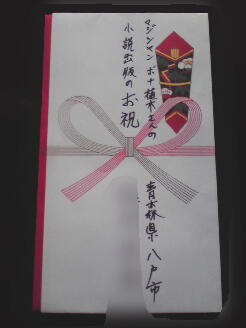 マジンマン ボナ植木さんの
小説出版のお祝
青森県八戸市